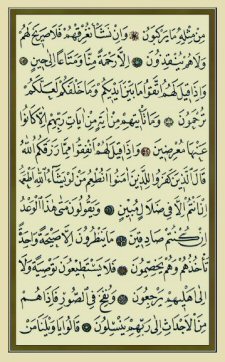 مِنْ مِثْلِهِ مَا يَرْكَبُونَ ۝ وَإِنْ نَشَأْ نُغْرِقْهُمْ فَلَا صَرِيخَ لَهُمْ
وَلَا هُمْ يُنْقَذُونَ ۝ إِلَّا رَحْمَةً مِنَّا وَمَتَاعًا إِلَى حِينٍ ۝
وَإِذَا قِيلَ لَهُمُ اتَّقُوا مَا بَيْنَ أَيْدِيكُمْ وَمَا خَلْفَكُمْ لَعَلَّكُمْ
تُرْحَمُونَ ۝ وَمَا تَأْتِيهِمْ مِنْ آيَةٍ مِنْ آيَاتِ رَبِّهِمْ إِلَّا كَانُوا
عَنْهَا مُعْرِضِينَ ۝ وَإِذَا قِيلَ لَهُمْ أَنْفِقُوا مِمَّا رَزَقَكُمُ اللَّهُ
قَالَ الَّذِينَ كَفَرُوا لِلَّذِينَ آمَنُوا أَنُطْعِمُ مَنْ لَوْ يَشَاءُ اللَّهُ أَطْعَمَهُ
إِنْ أَنْتُمْ إِلَّا فِي ضَلَالٍ مُبِينٍ ۝ وَيَقُولُونَ مَتَى هَذَا الْوَعْدُ
إِنْ كُنْتُمْ صَادِقِينَ ۝ مَا يَنْظُرُونَ إِلَّا صَيْحَةً وَاحِدَةً
تَأْخُذُهُمْ وَهُمْ يَخِصِّمُونَ ۝ فَلَا يَسْتَطِيعُونَ تَوْصِيَةً وَلَا
إِلَى أَهْلِهِمْ يَرْجِعُونَ ۝ وَنُفِخَ فِي الصُّورِ فَإِذَا هُمْ
مِنَ الْأَجْدَاثِ إِلَى رَبِّهِمْ يَنْسِلُونَ ۝ قَالُوا يَا وَيْلَنَا مَنْ